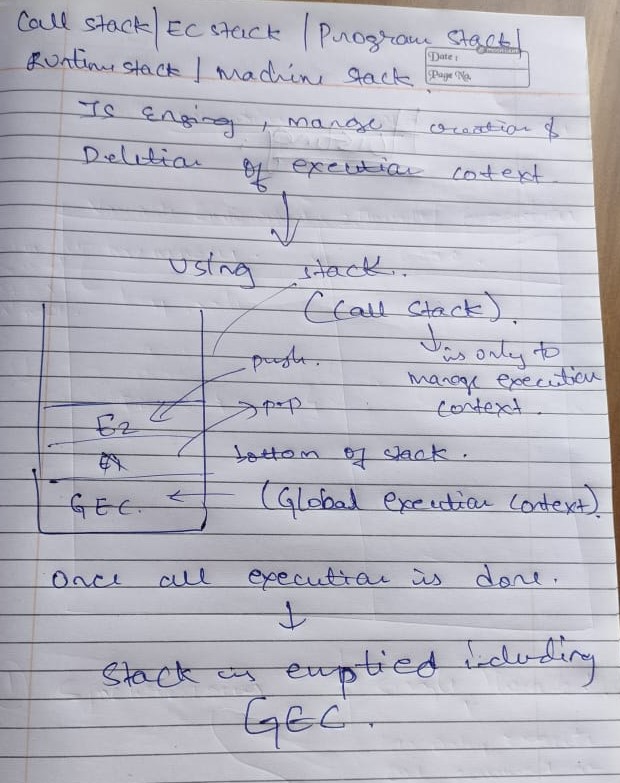 Call stack | EC stack | Program Stack |
Runtime stack | Machine Stack.
Date :
Page No.
JS Engine, mange creation &
Deletion of execution cotext
Using stack.
(Call Stack).
is only to
manage execution
context.
push.
pop
E2
E1
bottom of stack.
GEC.
(Global execution Context).
Once all execution is done.
Stack is emptied including
GEC.